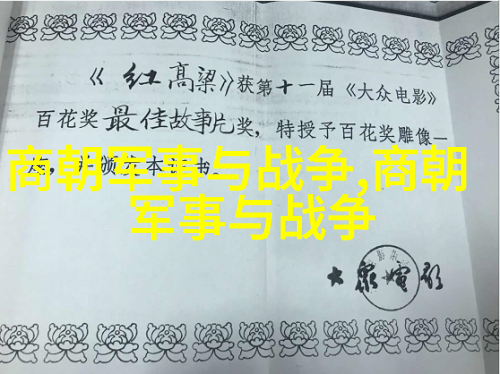 《红高粱》获第十一届《大众电影》
百花奖最佳故事片奖，特授予百花奖雕像一
颁 本 书。
商朝军事与战争,商朝
军事与战争
大众电影